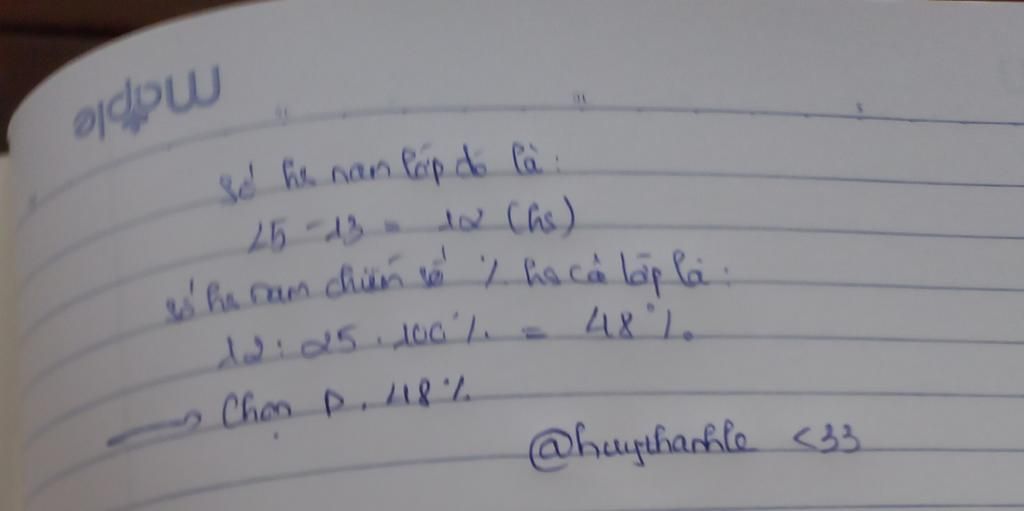 maple
số hs nam lớp đó là:
25 - 13 = 12 (hs)
số hs nam chiếm số % hs cả lớp là:
12 : 25 . 100% = 48%.
→ Chọn D. 48%
@huythanhle <33